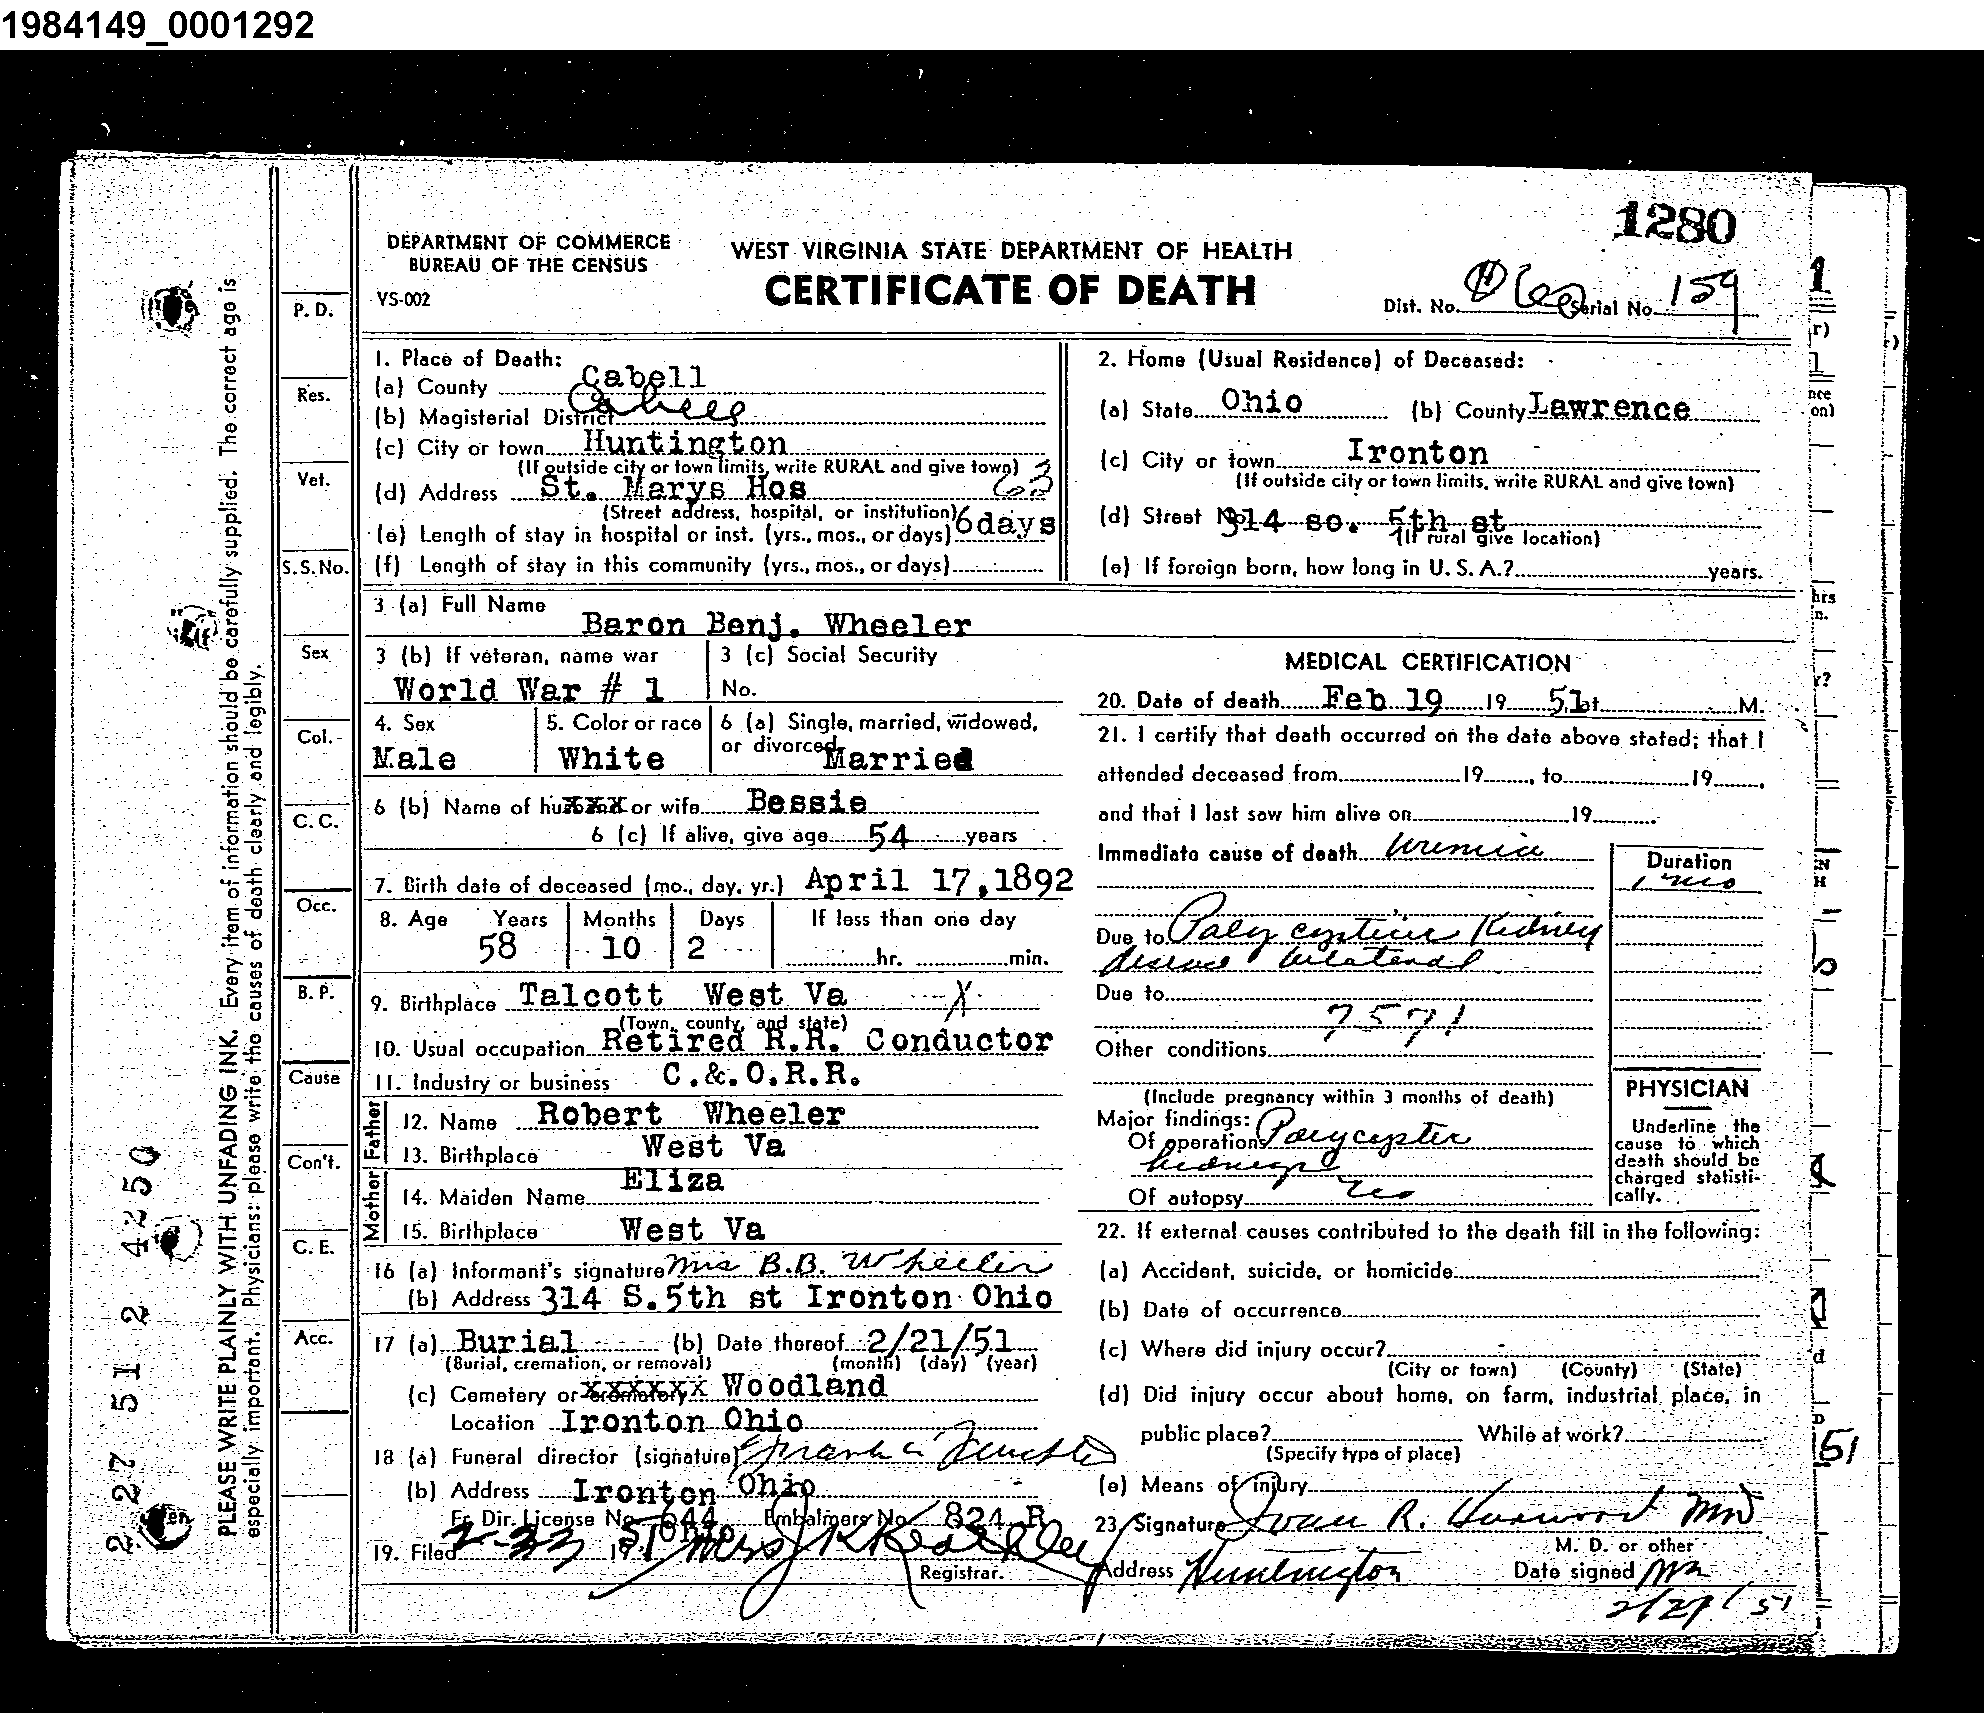 1984149_0001292
1280
DEPARTMENT OF COMMERCE
BUREAU OF THE CENSUS
VS-002
WEST VIRGINIA STATE DEPARTMENT OF HEALTH
CERTIFICATE OF DEATH
Dist. No. Serial No. 159
1. Place of Death:
(a) County Cabell
(b) Magisterial District Cabell
(c) City or town Huntington
(If outside city or town limits, write RURAL and give town)
(d) Address St. Marys Hos 63
(Street address, hospital, or institution)
(e) Length of stay in hospital or inst. (yrs., mos., or days) 6days
(f) Length of stay in this community (yrs., mos., or days)
2. Home (Usual Residence) of Deceased:
(a) State Ohio (b) County Lawrence
(c) City or town Ironton
(If outside city or town limits, write RURAL and give town)
(d) Street No. 314 so. 5th st
(If rural give location)
(e) If foreign born, how long in U. S. A.? years.
3 (a) Full Name
Baron Benj. Wheeler
3 (b) If veteran, name war
World War # 1
3 (c) Social Security
No.
4. Sex
Male
5. Color or race
White
6 (a) Single, married, widowed,
or divorced Married
6 (b) Name of huxxxx or wife Bessie
6 (c) If alive, give age 54 years
7. Birth date of deceased (mo., day, yr.) April 17,1892
8. Age Years Months Days If less than one day
58 10 2 hr. min.
9. Birthplace Talcott West Va X
(Town, county, and state)
10. Usual occupation Retired R.R. Conductor
11. Industry or business C.&.O.R.R.
Father
12. Name Robert Wheeler
13. Birthplace West Va
Mother
14. Maiden Name Eliza
15. Birthplace West Va
16 (a) Informant's signature Mrs B.B. Wheeler
(b) Address 314 S.5th st Ironton Ohio
17 (a) Burial (b) Date thereof 2/21/51
(Burial, cremation, or removal) (month) (day) (year)
(c) Cemetery or xxxxxxx Woodland
Location Ironton Ohio
18 (a) Funeral director (signature) Frank
(b) Address Ironton Ohio
Fr. Dir. License No. 644 Ohio Embalmers No. 824 B
19. Filed 2-23 1951 Mrs J K Keathley
Registrar.
MEDICAL CERTIFICATION
20. Date of death Feb 19 19 51 at M.
21. I certify that death occurred on the date above stated; that I
attended deceased from 19 , to 19 ,
and that I last saw him alive on 19 .
Immediate cause of death Uremia
Duration
1 mo
Due to Polycystic Kidney
disease bilateral
Due to
7571
Other conditions
(Include pregnancy within 3 months of death)
Major findings:
Of operation Polycystic
kidneys
Of autopsy no
PHYSICIAN
Underline the
cause to which
death should be
charged statisti-
cally.
22. If external causes contributed to the death fill in the following:
(a) Accident, suicide, or homicide
(b) Date of occurrence
(c) Where did injury occur?
(City or town) (County) (State)
(d) Did injury occur about home, on farm, industrial place, in
public place? While at work?
(Specify type of place)
(e) Means of injury
23. Signature R. Harwood MD
M. D. or other
Address Huntington Date signed
2/27/51
P. D.
Res.
Vet.
S.S.No.
Sex
Col.
C. C.
Occ.
B. P.
Cause
Con't.
C. E.
Acc.
PLEASE WRITE PLAINLY WITH UNFADING INK. Every item of information should be carefully supplied. The correct age is
especially important. Physicians: please write the causes of death clearly and legibly.
2 27 51 2 4250
51